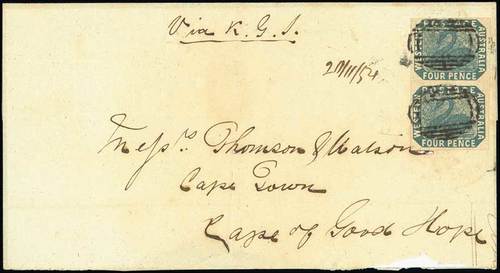 Via K. G. S.
20/11/54
Messrs. Thomson & Watson
Cape Town
Cape of Good Hope
POSTAGE
WESTERN
AUSTRALIA
FOUR PENCE
POSTAGE
WESTERN
AUSTRALIA
FOUR PENCE